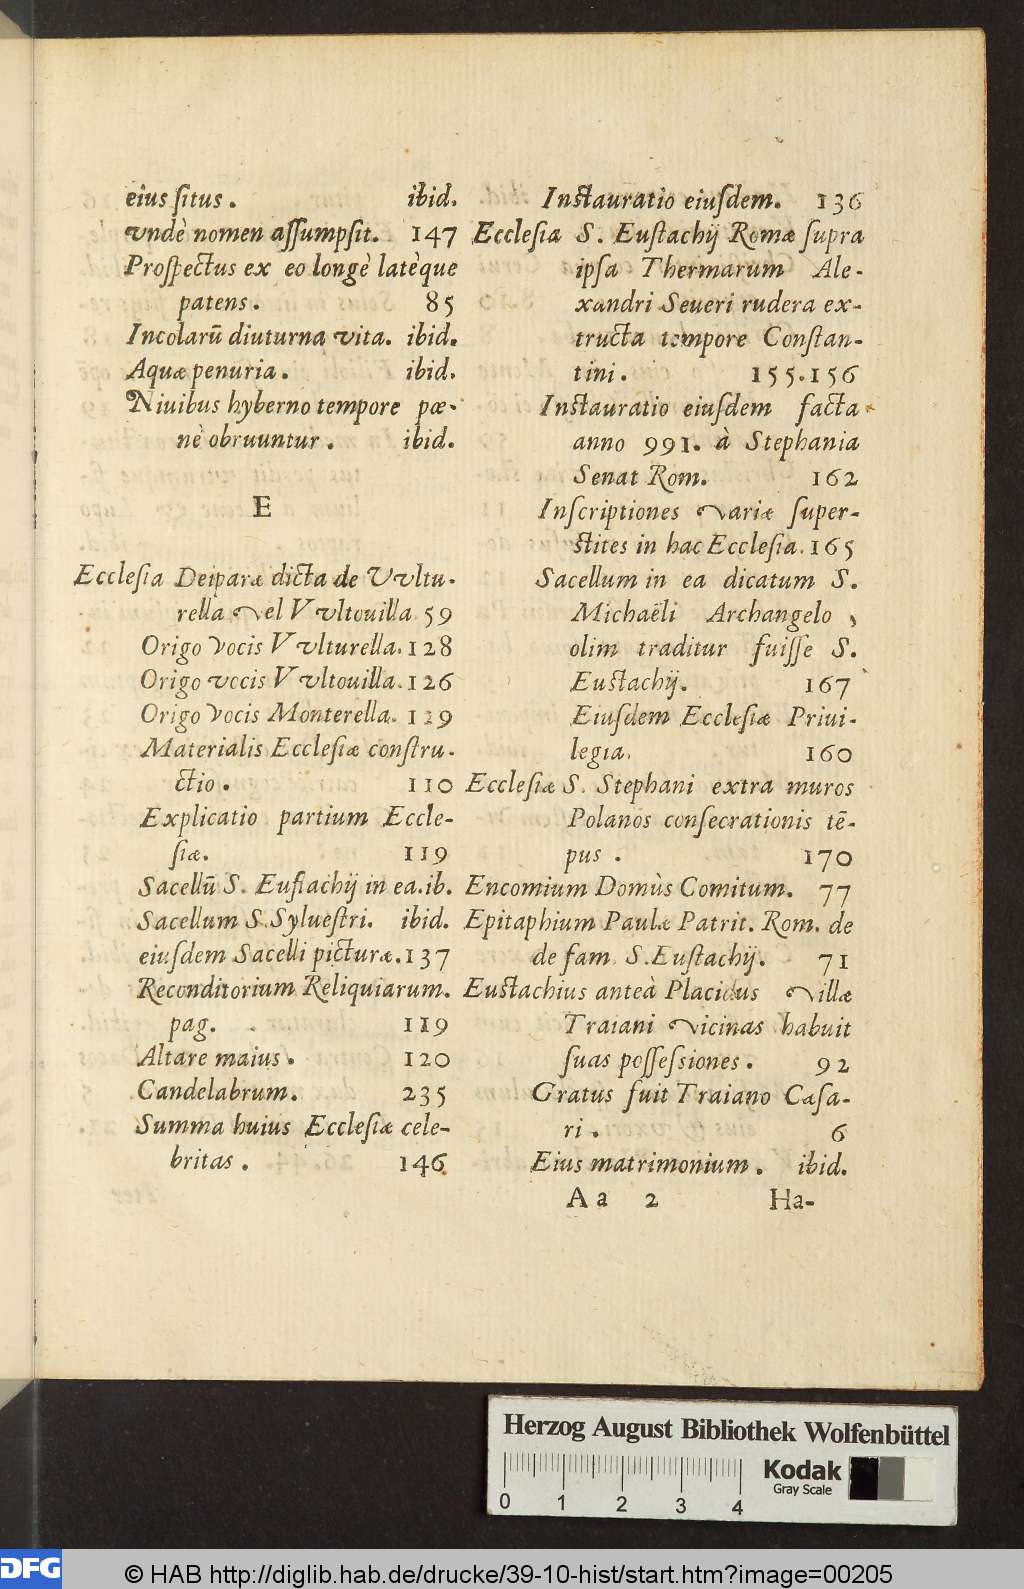 eius situs. ibid.
vndè nomen assumpsit. 147
Prospectus ex eo longè latèque
patens. 85
Incolarũ diuturna vita. ibid.
Aquæ penuria. ibid.
Niuibus hyberno tempore pœ-
nè obruuntur. ibid.
E
Ecclesia Deiparæ dicta de Vvltu-
rella vel Vvltouilla 59
Origo vocis Vvlturella. 128
Origo vocis Vvltouilla. 126
Origo vocis Monterella. 129
Materialis Ecclesiæ constru-
ctio. 110
Explicatio partium Eccle-
siæ. 119
Sacellũ S. Eustachij in ea. ib.
Sacellum S. Syluestri. ibid.
eiusdem Sacelli picturæ. 137
Reconditorium Reliquiarum.
pag. 119
Altare maius. 120
Candelabrum. 235
Summa huius Ecclesiæ cele-
britas. 146
Instauratio eiusdem. 136
Ecclesia S. Eustachij Romæ supra
ipsa Thermarum Ale-
xandri Seueri rudera ex-
tructa tempore Constan-
tini. 155.156
Instauratio eiusdem facta
anno 991. à Stephania
Senat Rom. 162
Inscriptiones variæ super-
stites in hac Ecclesia. 165
Sacellum in ea dicatum S.
Michaëli Archangelo,
olim traditur fuisse S.
Eustachij. 167
Eiusdem Ecclesiæ Priui-
legia. 160
Ecclesiæ S. Stephani extra muros
Polanos consecrationis tẽ-
pus. 170
Encomium Domùs Comitum. 77
Epitaphium Paulæ Patrit. Rom. de
de fam. S. Eustachij. 71
Eustachius anteà Placidus villæ
Traiani vicinas habuit
suas possessiones. 92
Gratus fuit Traiano Cæsa-
ri. 6
Eius matrimonium. ibid.
Aa 2 Ha-
Herzog August Bibliothek Wolfenbüttel
0 1 2 3 4
Kodak
Gray Scale
DFG © HAB http://diglib.hab.de/drucke/39-10-hist/start.htm?image=00205